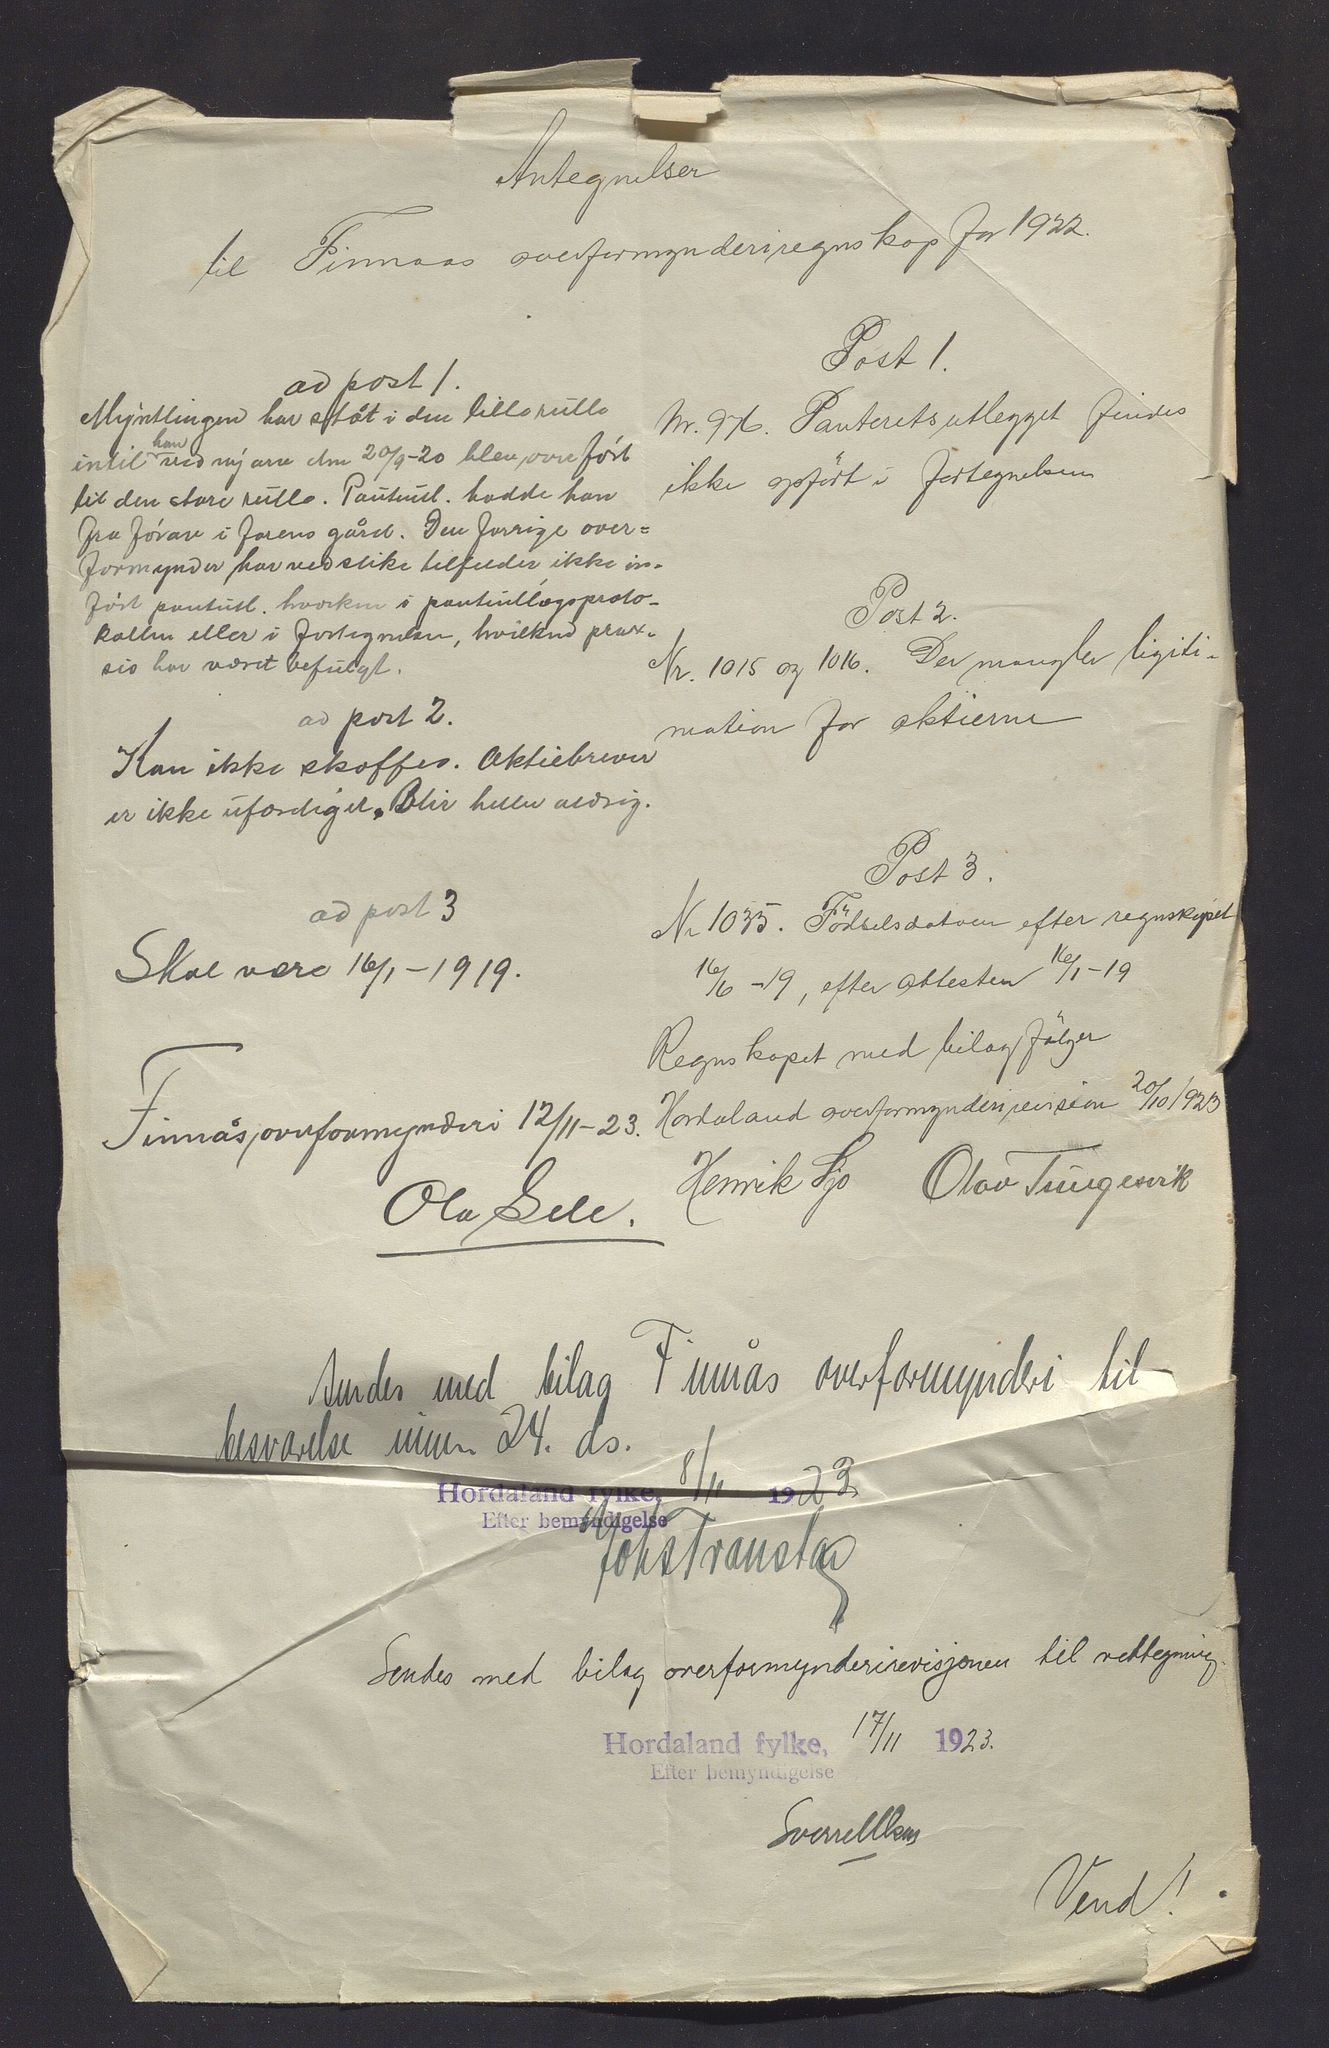 Antegnelser
til Finnaas overformynderiregnskap for 1922.
Post 1.
Nr. 976. Panteretsutlegget findes
ikke opført i fortegnelsen
Post 2.
Nr. 1015 og 1016. Der mangler ligiti-
mation for aktierne
Post 3.
Nr 1035. Födselsdatoen efter regnskapet
16/6 -19, efter attesten 16/1 -19
Regnskapet med bilag fölger
Hordaland overformynderirevision 20/10 1923
Henrik Sjo Olav Tungesvik
ad post 1.
Myntlingen har ståt i den lille rulle
intil han ved ny arv den 20/9-20 blev overfört
til den store rulle. Pantutl. hadde han
fra før av i farens gård. Den forrige over=
formynder har ved slike tilfælder ikke in-
fört pantutl. hverken i pantutlægsproto-
kollen eller i fortegnelsen, hvilken prax-
sis har været befulgt.
ad post 2.
Kan ikke skaffes. Aktiebrever
er ikke utfærdiget. Blir heller aldrig.
ad post 3
Skal være 16/1 - 1919.
Finnås overformynderi 12/11 - 23.
Ola Sele.
Sendes med bilag Finnås overformynderi til
besvarelse innen 24. ds.
Hordaland fylke, 8/11 1923
Efter bemyndigelse
Sendes med bilag overformynderirevisjonen til vedtegning.
Hordaland fylke, 17/11 1923.
Efter bemyndigelse
Vend!